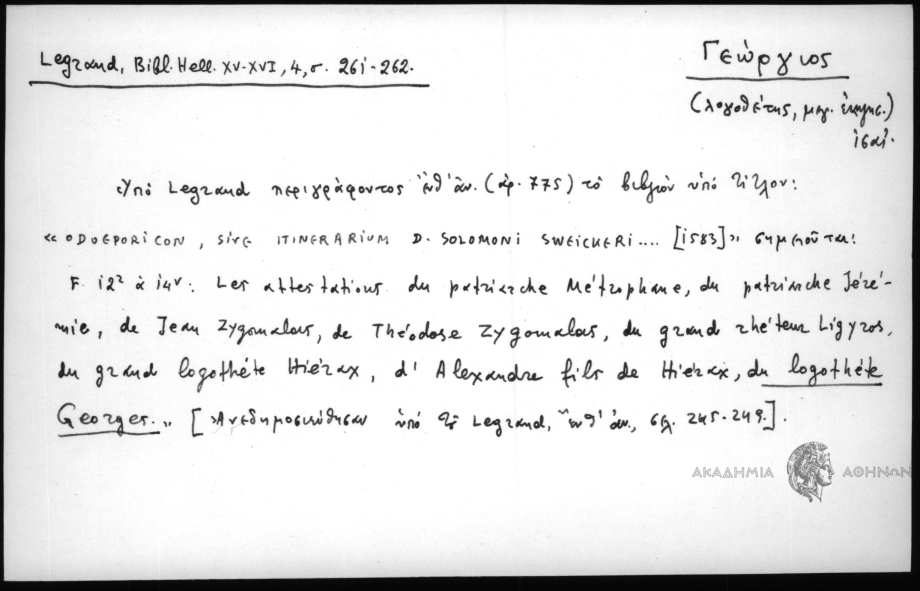 Legrand, Bibl. Hell. XV-XVI, 4, σ. 261-262.
Γεώργιος
(λογοθέτης, μεγ. ἐκκλησ.)
ις αἰ.
Ὑπὸ Legrand περιγράφοντος ἔνθ' ἀν. (ἀρ. 775) τὸ βιβλίον ὑπὸ τίτλον:
«ODOEPORICON, SIVE ITINERARIUM D. SOLOMONI SWEICKERI.... [1583]» σημειοῦται:
F. 12² à 14ᵛ: Les attestations du patriarche Métrophane, du patriarche Jéré-
mie, de Jean Zygomalas, de Théodose Zygomalas, du grand rhéteur Ligyros,
du grand logothéte Hiérax, d'Alexandre fils de Hiérax, du logothéte
Georges.„ [Ἀνεδημοσιεύθησαν ὑπὸ τοῦ Legrand, ἔνθ' ἀν., σελ. 245-249.].
ΑΚΑΔΗΜΙΑ ΑΘΗΝΩΝ